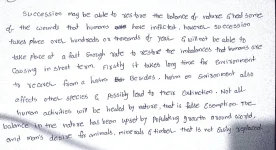 Succession may be able to restore the balance of nature & heal some
of the wounds that humans have inflicted, however succession
takes place over hundreds or thousands of years & will not be able to
take place at a fast enough rate to restore the imbalances that humans are
causing in short term. Firstly it takes long time for environment
to recover from a harm. Besides, harm on environment also
affects other species & possibly lead to their extinction. Not all
human activities will be healed by nature, that is false exemption. The
balance in the nature has been upset by populating growth around world,
and man's desire for animals, minerals & timber that is not easily replaced.